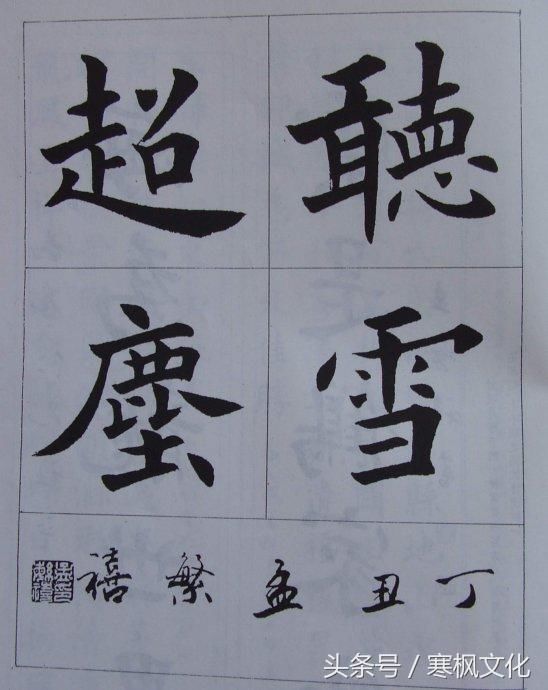 聽雪
超塵
丁丑孟繁禧
头条号 / 寒枫文化